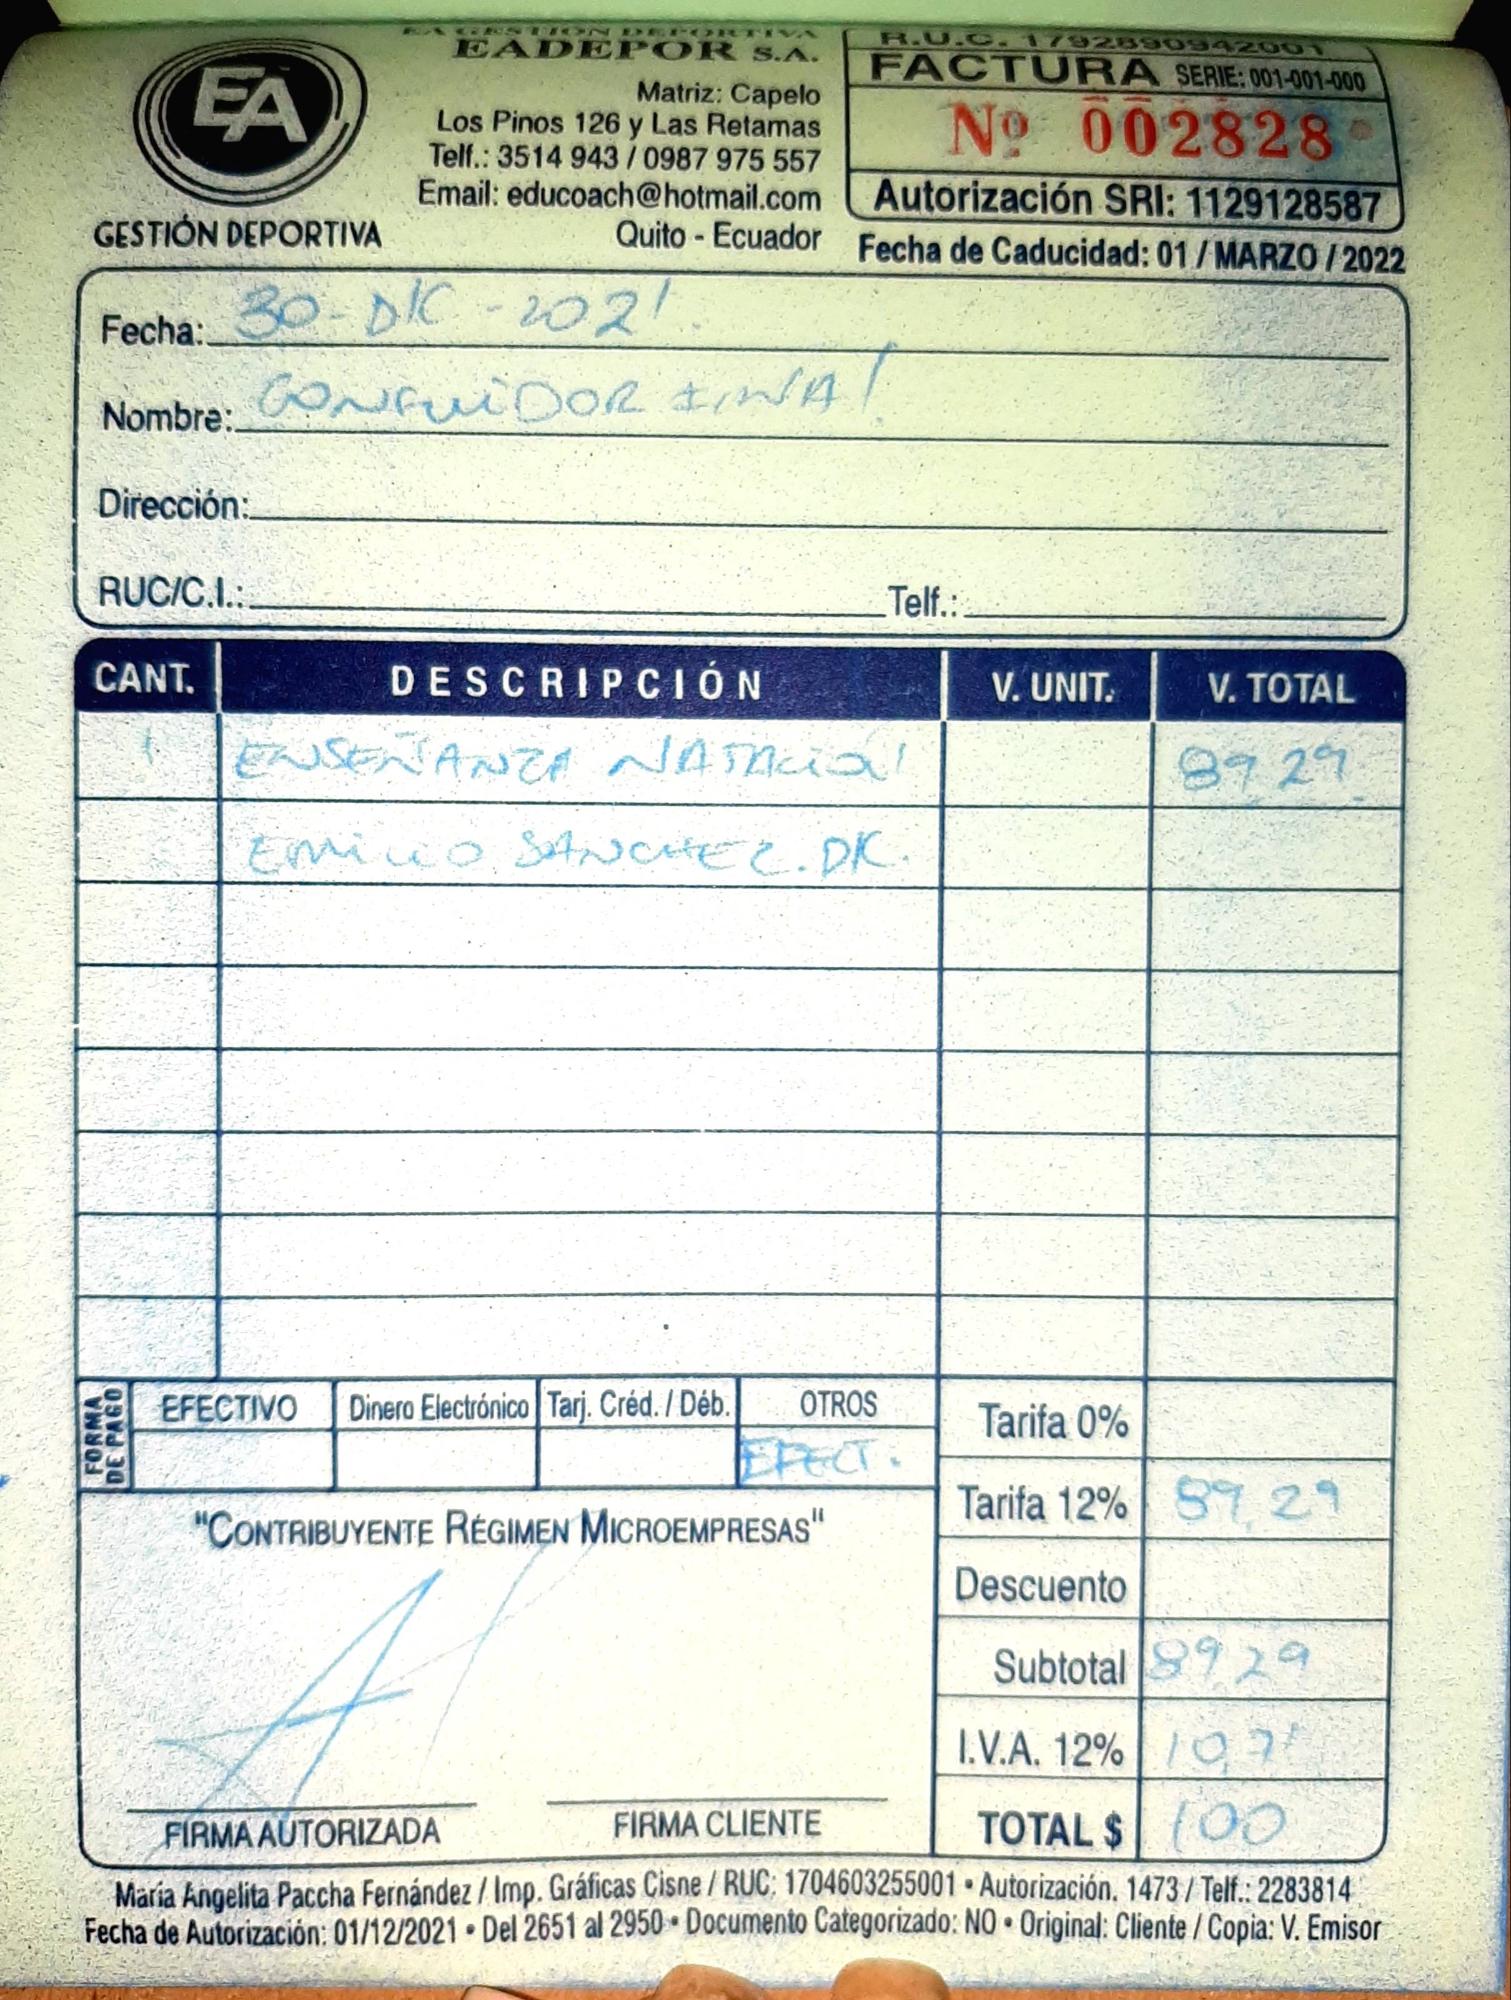 EA GESTIÓN DEPORTIVA
EADEPOR S.A.
Matriz: Capelo
Los Pinos 126 y Las Retamas
Telf.: 3514 943 / 0987 975 557
Email: educoach@hotmail.com
Quito - Ecuador
EA
GESTIÓN DEPORTIVA
R.U.C. 1792890942001
FACTURA SERIE: 001-001-000
Nº 002828
Autorización SRI: 1129128587
Fecha de Caducidad: 01 / MARZO / 2022
Fecha: 30-DIC-2021
Nombre: CONSUMIDOR FINAL
Dirección:
RUC/C.I.: Telf.:
CANT. DESCRIPCIÓN V. UNIT. V. TOTAL
1 ENSEÑANZA NATACIÓN 89.29
EMILIO SANCHEZ. DIC.
FORMA DE PAGO
EFECTIVO Dinero Electrónico Tarj. Créd. / Déb. OTROS
EFECT.
Tarifa 0%
Tarifa 12% 89.29
Descuento
Subtotal 89.29
I.V.A. 12% 10,71
TOTAL $ 100
"CONTRIBUYENTE RÉGIMEN MICROEMPRESAS"
FIRMA AUTORIZADA FIRMA CLIENTE
María Angelita Paccha Fernández / Imp. Gráficas Cisne / RUC: 1704603255001 • Autorización. 1473 / Telf.: 2283814
Fecha de Autorización: 01/12/2021 • Del 2651 al 2950 • Documento Categorizado: NO • Original: Cliente / Copia: V. Emisor